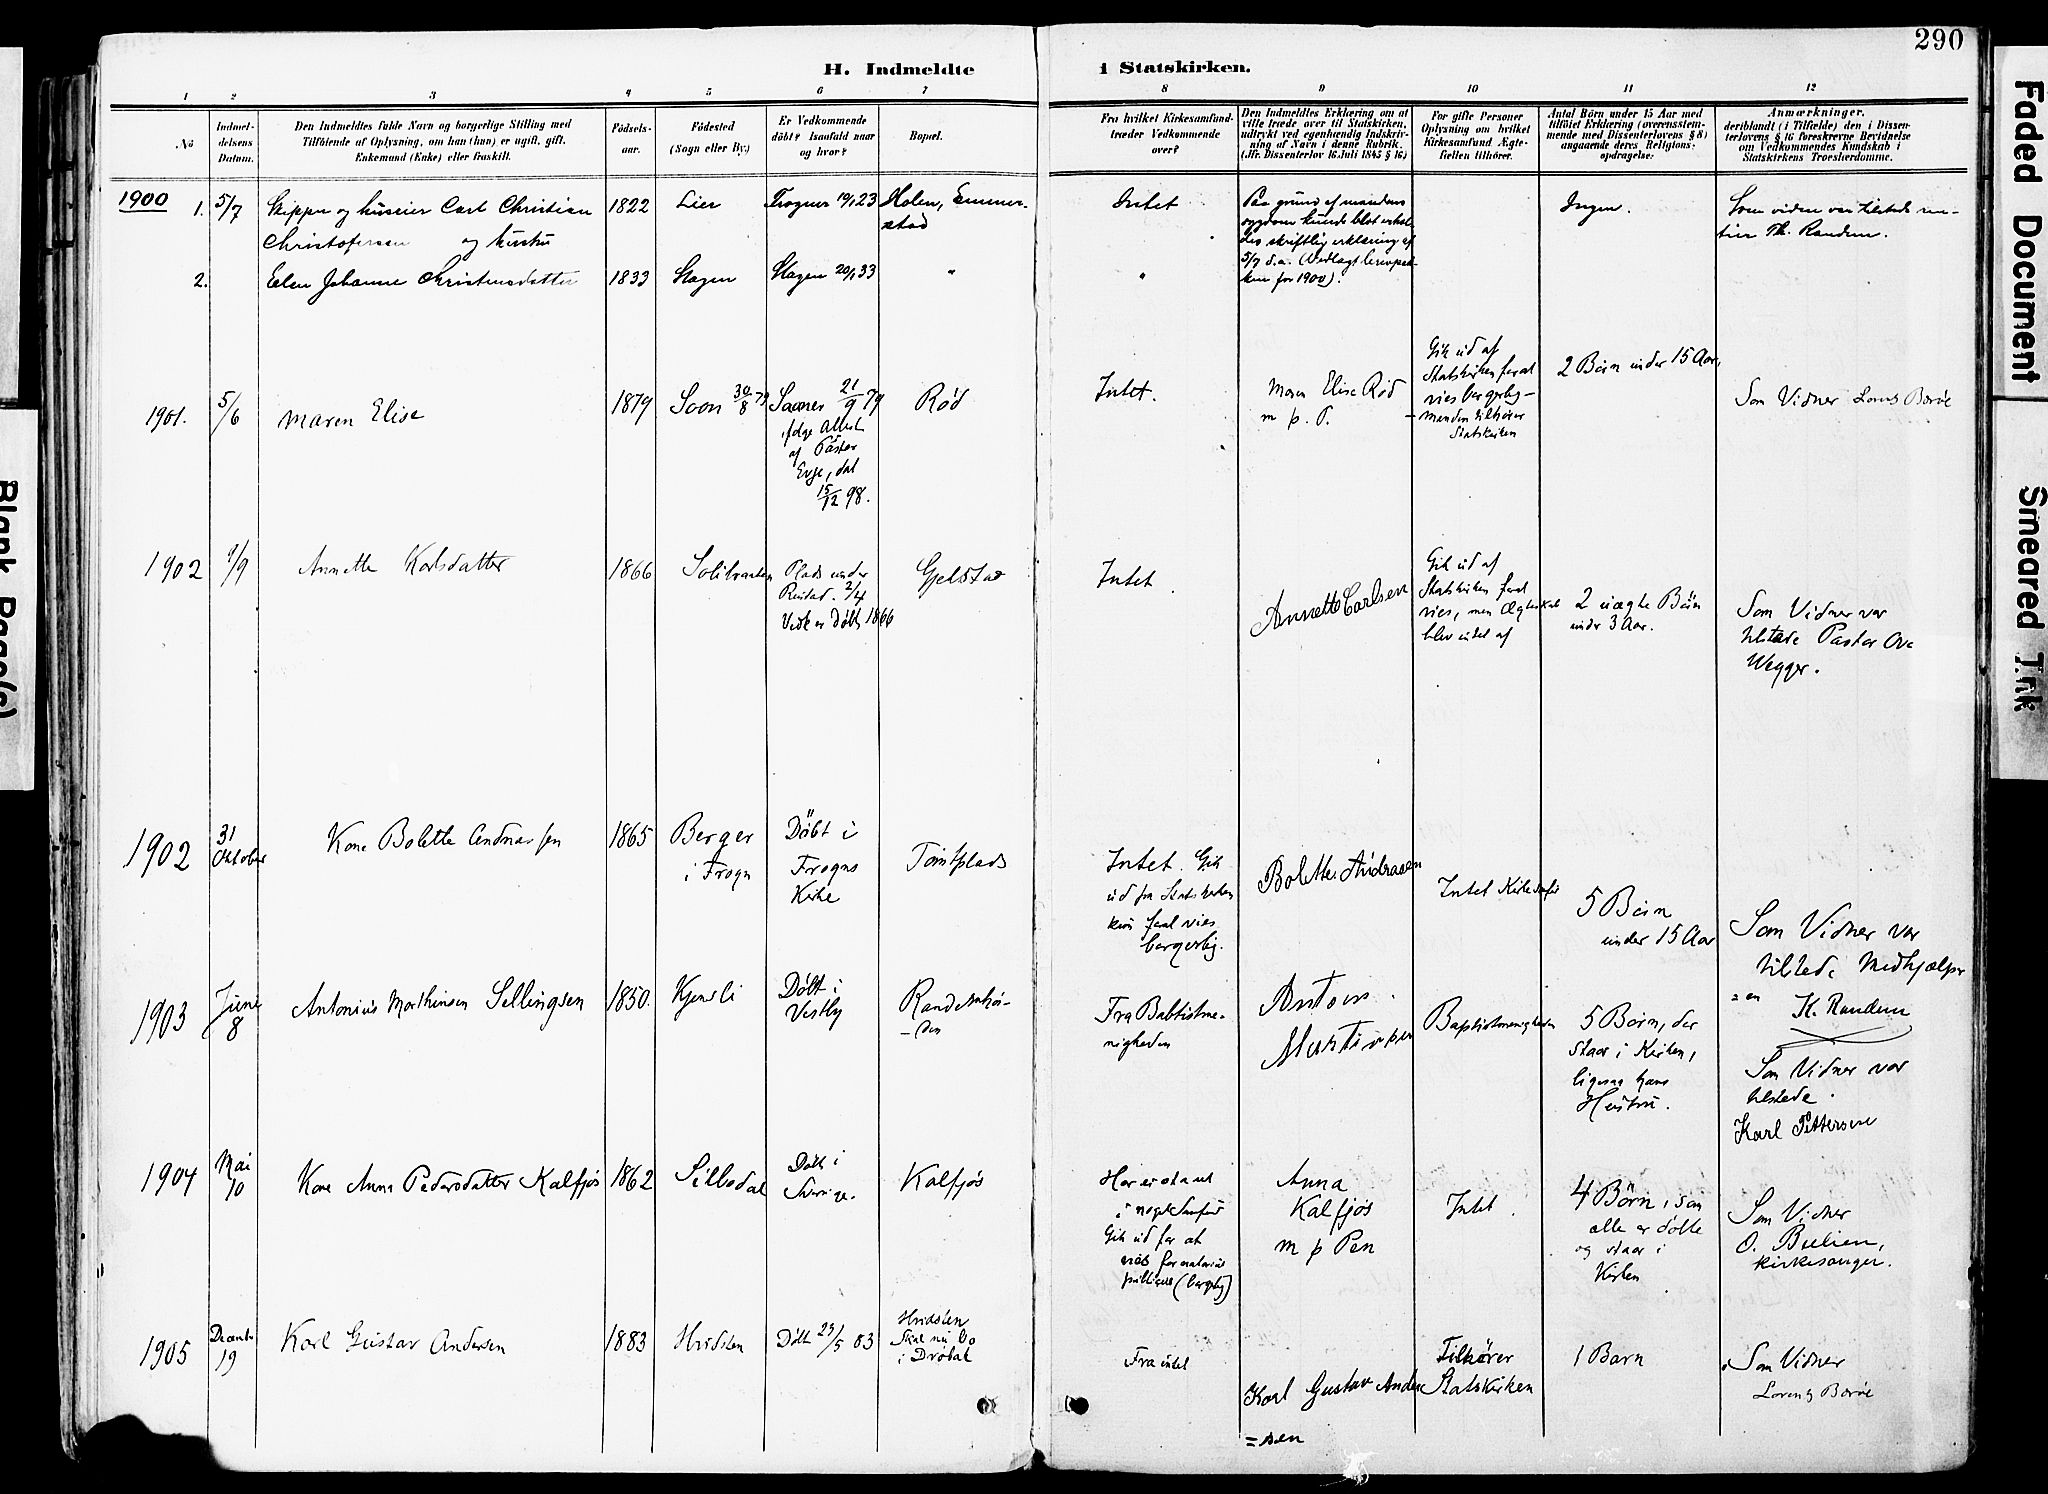 290
H. Indmeldte
i Statskirken.
1 2 3 4 5 6 7 8 9 10 11 12
No
Indmel-
delsens
Datum.
Den Indmeldtes fulde Navn og borgerlige Stilling med
Tilföiende af Oplysning, om han (hun) er ugift, gift,
Enkemand (Enke) eller fraskilt.
Födsels-
aar.
Födested
(Sogn eller By.)
Er Vedkommende
döbt? Isaafald naar
og hvor?
Bopæl.
Fra hvilket Kirkesamfund
træder Vedkommende
over?
Den Indmeldtes Erklæring om at
ville træde over til Statskirken,
udtrykt ved egenhændig Indskriv-
ning af Navn i denne Rubrik.
(Jfr. Dissenterlov 16 Juli 1845 § 16)
For gifte Personer
Oplysning om hvilket
Kirkesamfund Ægte-
fællen tilhörer.
Antal Börn under 15 Aar med
tilföiet Erklæring (overensstem-
mende med Dissenterlovens § 8)
angaaende deres Religions-
opdragelse.
Anmærkninger,
deriblandt (i Tilfælde) den i Dissen-
terlovens § 16 foreskrevne Bevidnelse
om Vedkommendes Kundskab i
Statskirkens Troeslærdomme.
1900
1.
5/7
Skipper og huseier Carl Christian
Christofersen og hustru
1822
Lier
Frogner 19/1 23
Holen, Emmer-
stad
Intet
Paa grund af mandens
sygdom kunde blot erhol-
des skriftlig erklæring af
5/7 d.a. (Vedlagt brevpak-
ken for 1900).
Ingen.
Som vidne var tilstede
Th. Randem.
2.
Elen Johanne Christensdatter
1833
Skagen
Skagen 20/1 33
"
"
1901.
5/6
Maren Elise
1879
Soon 30/8 79
Saaner 21/9 79
ifølge Attest
af Pastor
Evje, dat
15/12 98.
Rød
Intet.
Maren Elise Rød
m p. P.
Gik ud af
Statskirken for at
vies borgerlig —
— manden tilhører
Statskirken
2 Børn under 15 Aar.
Som Vidner Lorentz Borøe
1902
9/9
Annette Karlsdatter
1866
Plads under
Rustad. 2/4
Vedk er Døbt 1866
Gjelstad
Intet.
Annette Carlsen
Gik ud af
Statskirken for at
vies, men Ægteskab
blev intet af
2 uægte Børn
under 3 Aar.
Som Vidner var
tilstede Pastor Ove
Wegger.
1902
31
Oktober
Kone Bolette Andreassen
1865
Berger
i Frogn
Døbt i
Frogns
Kirke
Tomtplads
Intet. Gik
ud fra Statskirken
kun for at vies
borgerlig.
Bolette Andrasen
Intet Kirkesamfd
5 Børn
under 15 Aar
Som Vidner var
tilstede Medhjælper
= en
K. Randem
1903
June
8
Antonius Marthinsen Sellingsen
1850.
Kjensli
Døbt i
Vestby
Fra Babtistme-
nigheden
Anton
Martinsen
Baptistmenigheden
5 Børn, der
staar i Kirken,
ligesaa hans
Hustru.
Som Vidner var
tilstede.
Karl Pettersen
1904
Mai
10
Kone Anna Pedersdatter Kalfjøs
1862
Sillbodal
Døbt i
Sverige.
Kalfjøs
Har ei staaet
i noget Samfund
Gik ud for at
vies for notarius
publicus (borgerlig)
Anna
Kalfjøs
m p Pen
Intet.
4 Børn, som
alle er døbte
og staar i
Kirken
Som Vidner
O. Bulien,
kirkesanger.
1905
Decemb
19
Karl Gustav Andersen
1883
Hvidsten
Døbt 29/5 83
Hvidsten
Skal nu bo
i Drøbak
Fra intet
Karl Gustav Ander
= sen
Tilhører
Statskirken
1 Barn
Som Vidner
Lorentz Borøe
Faded Document
Smeared Ink
Blank Page(s)